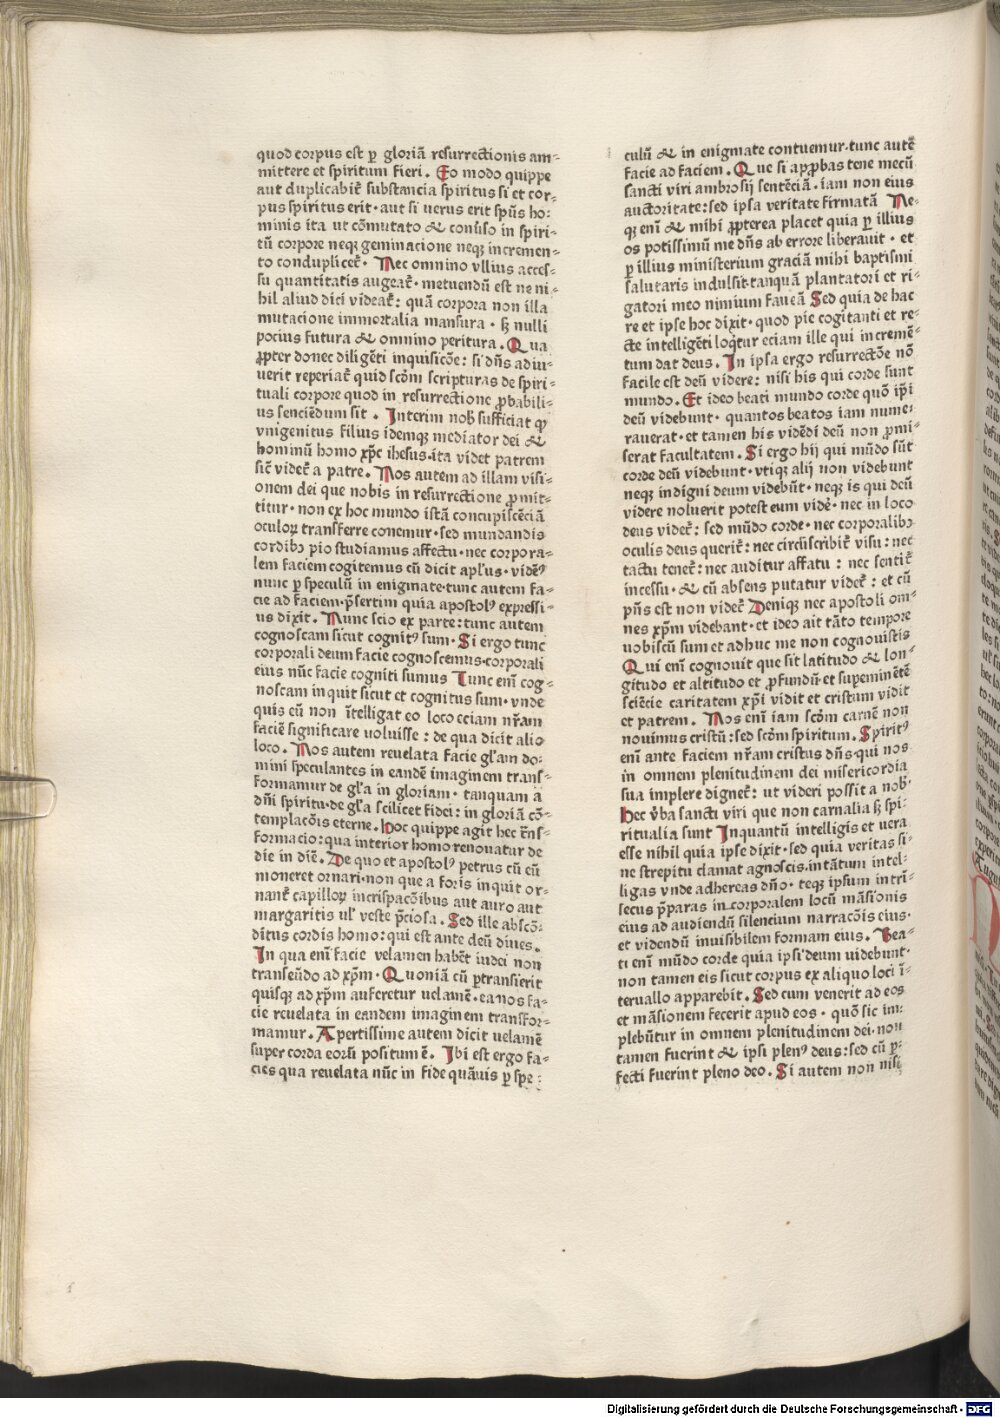 quod corpus est ꝑ gloriā resurrectionis am⸗
mittere et spiritum fieri. Eo modo quippe
aut duplicabit̄ substancia spiritus si et cor⸗
pus spiritus erit· aut si uerus erit spūs ho⸗
minis ita ut cōmutato & conuso in spiri⸗
tū corpore neqꝫ geminacione neqꝫ incremen⸗
to conduplicet̄· Nec omnino vllius acces⸗
su quantitatis augeat̄· metuendū est ne ni⸗
hil aliud dici videat̄: quā corpora non illa
mutacione immortalia mansura· sꝫ nulli
pocius futura & omnino peritura. Qua
ꝓpter donec diligēti inquisicōe: si dn̄s adiu⸗
uerit reperiat̄ quid scōm scripturas de spiri⸗
tuali corpore quod in resurrectione ꝓbabili⸗
us senciēdum sit. Interim nob̄ sufficiat ꝙ
vnigenitus filius idemqꝫ mediator dei &
hominū homo xp̄c ihesus·ita videt patrem
sic̄ videt̄ a patre. Nos autem ad illam visi⸗
onem dei que nobis in resurrectione ꝓmit⸗
titur· non ex hoc mundo istā concupiscēciā
oculoꝝ transferre conemur· sed mundandis
cordibꝰ pio studiamus affectu· nec corpora⸗
lem faciem cogitemus cū dicit apl'us· vidēꝰ
nunc ꝑ speculū in enigmate·tunc autem fa⸗
cie ad faciem·p̄sertim quia apostolꝰ expressi⸗
us dixit. Nunc scio ex parte: tunc autem
cognoscam sicut cognitꝰ sum· Si ergo tunc
corporali deum facie cognoscemus·corporali
eius nūc facie cogniti sumus Tunc eni̅ cog⸗
noscam inquit sicut et cognitus sum· vnde
quis cū non ītelligat eo loco eciam nr̄am
faciē significare voluisse: de qua dicit alio
loco. Nos autem reuelata facie gl'am do⸗
mini speculantes in eandē imaginem trans⸗
formamur de gl'a in gloriam· tanquam a
dn̄i spiritu· de gl'a scilicet fidei: in gloriā cō⸗
templacōis eterne. Hoc quippe agit hec trn̄s⸗
formacio: qua interior homo renouatur de
die in diē. De quo et apostolꝰ petrus cū eū
moneret ornari·non que a foris inquit or⸗
nant̄ capilloꝝ incrispacōibus aut auro aut
margaritis ul' veste p̄ciosa. Sed ille abscō⸗
ditus cordis homo: qui est ante deū diues.
In qua eni̅ facie velamen habēt iudei non
transeūdo ad xp̄m· Quoniā cū ꝑtransierit
quisqꝫ ad xp̄m auferetur uelamē· ea nos fa⸗
cie reuelata in eandem imaginem transfor⸗
mamur. Apertissime autem dicit uelamē
super corda eorū positum ē. Ibi est ergo fa⸗
cies qua reuelata nūc in fide quāuis ꝑ spe⸗
culū & in enigmate contuemur·tunc autē
facie ad faciem. Que si approbas tene mecū
sancti viri ambrosij sentēciā· iam non eius
auctoritate: sed ipsa veritate firmatā Ne⸗
qꝫ eni̅ & mihi ꝓpterea placet quia ꝑ illius
os potissimū me dn̄s ab errore liberauit· et
ꝑ illius ministerium graciā mihi baptismi
salutaris indulsit·tanquā plantatori et ri⸗
gatori meo nimium faueā Sed quia de hac
re et ipse hoc dixit· quod pie cogitanti et re⸗
cte intelligēti loqt̄ur eciam ille qui incremē⸗
tum dat deus. In ipsa ergo resurrectōe nō
facile est deū videre: nisi his qui corde sunt
mundo. Et ideo beati mundo corde quō ip̄i
deū videbunt· quantos beatos iam nume⸗
rauerat· et tamen his vidēdi deū non ꝓmi⸗
serat facultatem. Si ergo hij qui mūdo sūt
corde deū videbunt· vtiqꝫ alij non videbunt
neqꝫ indigni deum videbūt· neqꝫ is qui deū
videre noluerit potest eum vidē̄· nec in loco
deus videt̄: sed mūdo corde· nec corporalibꝰ
oculis deus querit̄: nec circūscribit̄ visu: nec
tactu tenet̄: nec auditur affatu: nec sentit̄
incessu· & cū absens putatur videt̄: et cū
pn̄s est non videt̄ Deniqꝫ nec apostoli om⸗
nes xp̄m videbant· et ideo ait tāto tempore
uobiscū sum et adhuc me non cognouistis
Qui eni̅ cognouit que sit latitudo & lon⸗
gitudo et altitudo et ꝓfundū et supeminētē
sciēcie caritatem xp̄i vidit et cristum vidit
et patrem. Nos eni̅ iam scōm carnē non
nouimus cristū: sed scōm spiritum. Spiritꝰ
eni̅ ante faciem nr̄am cristus dn̄s· qui nos
in omnem plenitudinem dei misericordia
sua implere dignet̄: ut videri possit a nob̄·
Hec v̄ba sancti viri que non carnalia sꝫ spi⸗
ritualia sunt Inquantū intelligis et uera
esse nihil quia ipse dixit· sed quia veritas si⸗
ne strepitu clamat agnoscis·intātum intel⸗
ligas vnde adhereas dn̄o· teqꝫ ipsum intrī⸗
secus p̄paras in corporalem locū māsionis
eius ad audiendū silencium narracōis eius·
et videndū inuisibilem formam eius. Bea⸗
ti eni̅ mūdo corde quia ipsi deum videbunt·
non tamen eis sicut corpus ex aliquo loci ī⸗
teruallo apparebit. Sed cum venerit ad eos
et māsionem fecerit apud eos· quō sic im⸗
plebūtur in omnem plenitudinem dei· non
tamen fuerint & ipsi plenꝰ deus: sed cū ꝑ⸗
fecti fuerint pleno deo. Si autem non nisi
Digitalisierung gefördert durch die Deutsche Forschungsgemeinschaft - DFG